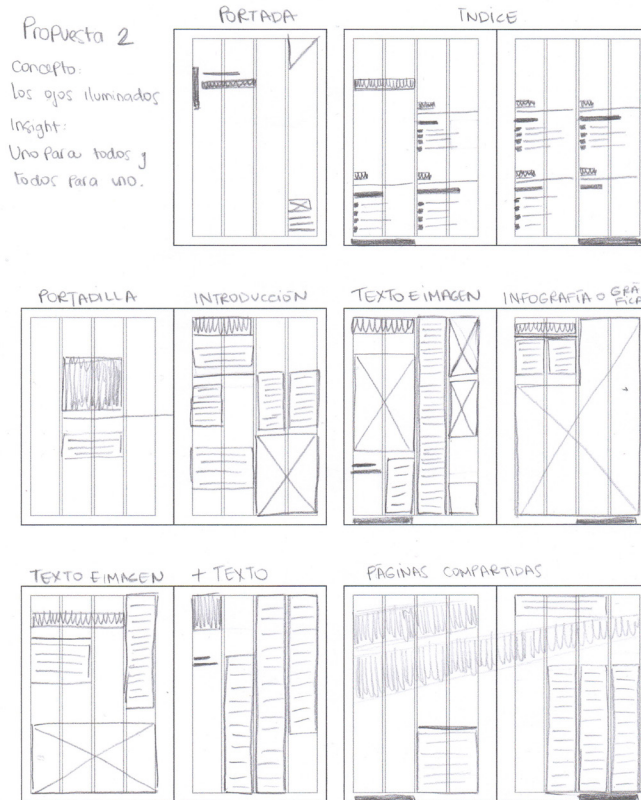 Propuesta 2
Concepto:
Los ojos iluminados
Insight:
Uno para todos y
todos para uno.
PORTADA
ÍNDICE
PORTADILLA
INTRODUCCIÓN
TEXTO E IMAGEN
INFOGRAFÍA O GRÁ
FICA
TEXTO E IMAGEN
+ TEXTO
PÁGINAS COMPARTIDAS